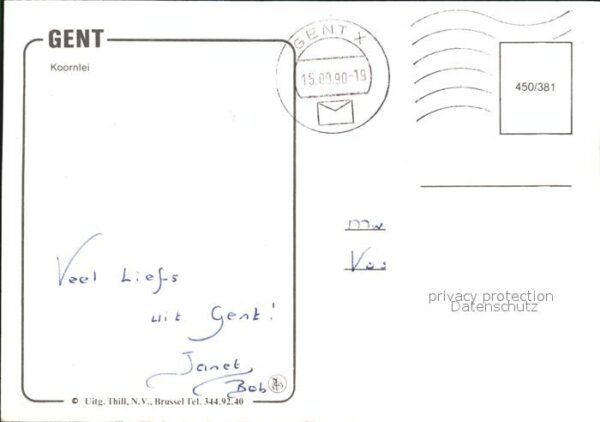 GENT
Koornlei
GENT X
15.09.90-19
450/381
Mw
Veel Liefs
uit Gent!
Janet,
Bob
privacy protection
Datenschutz
© Uitg. Thill, N.V., Brussel Tel. 344.92.40